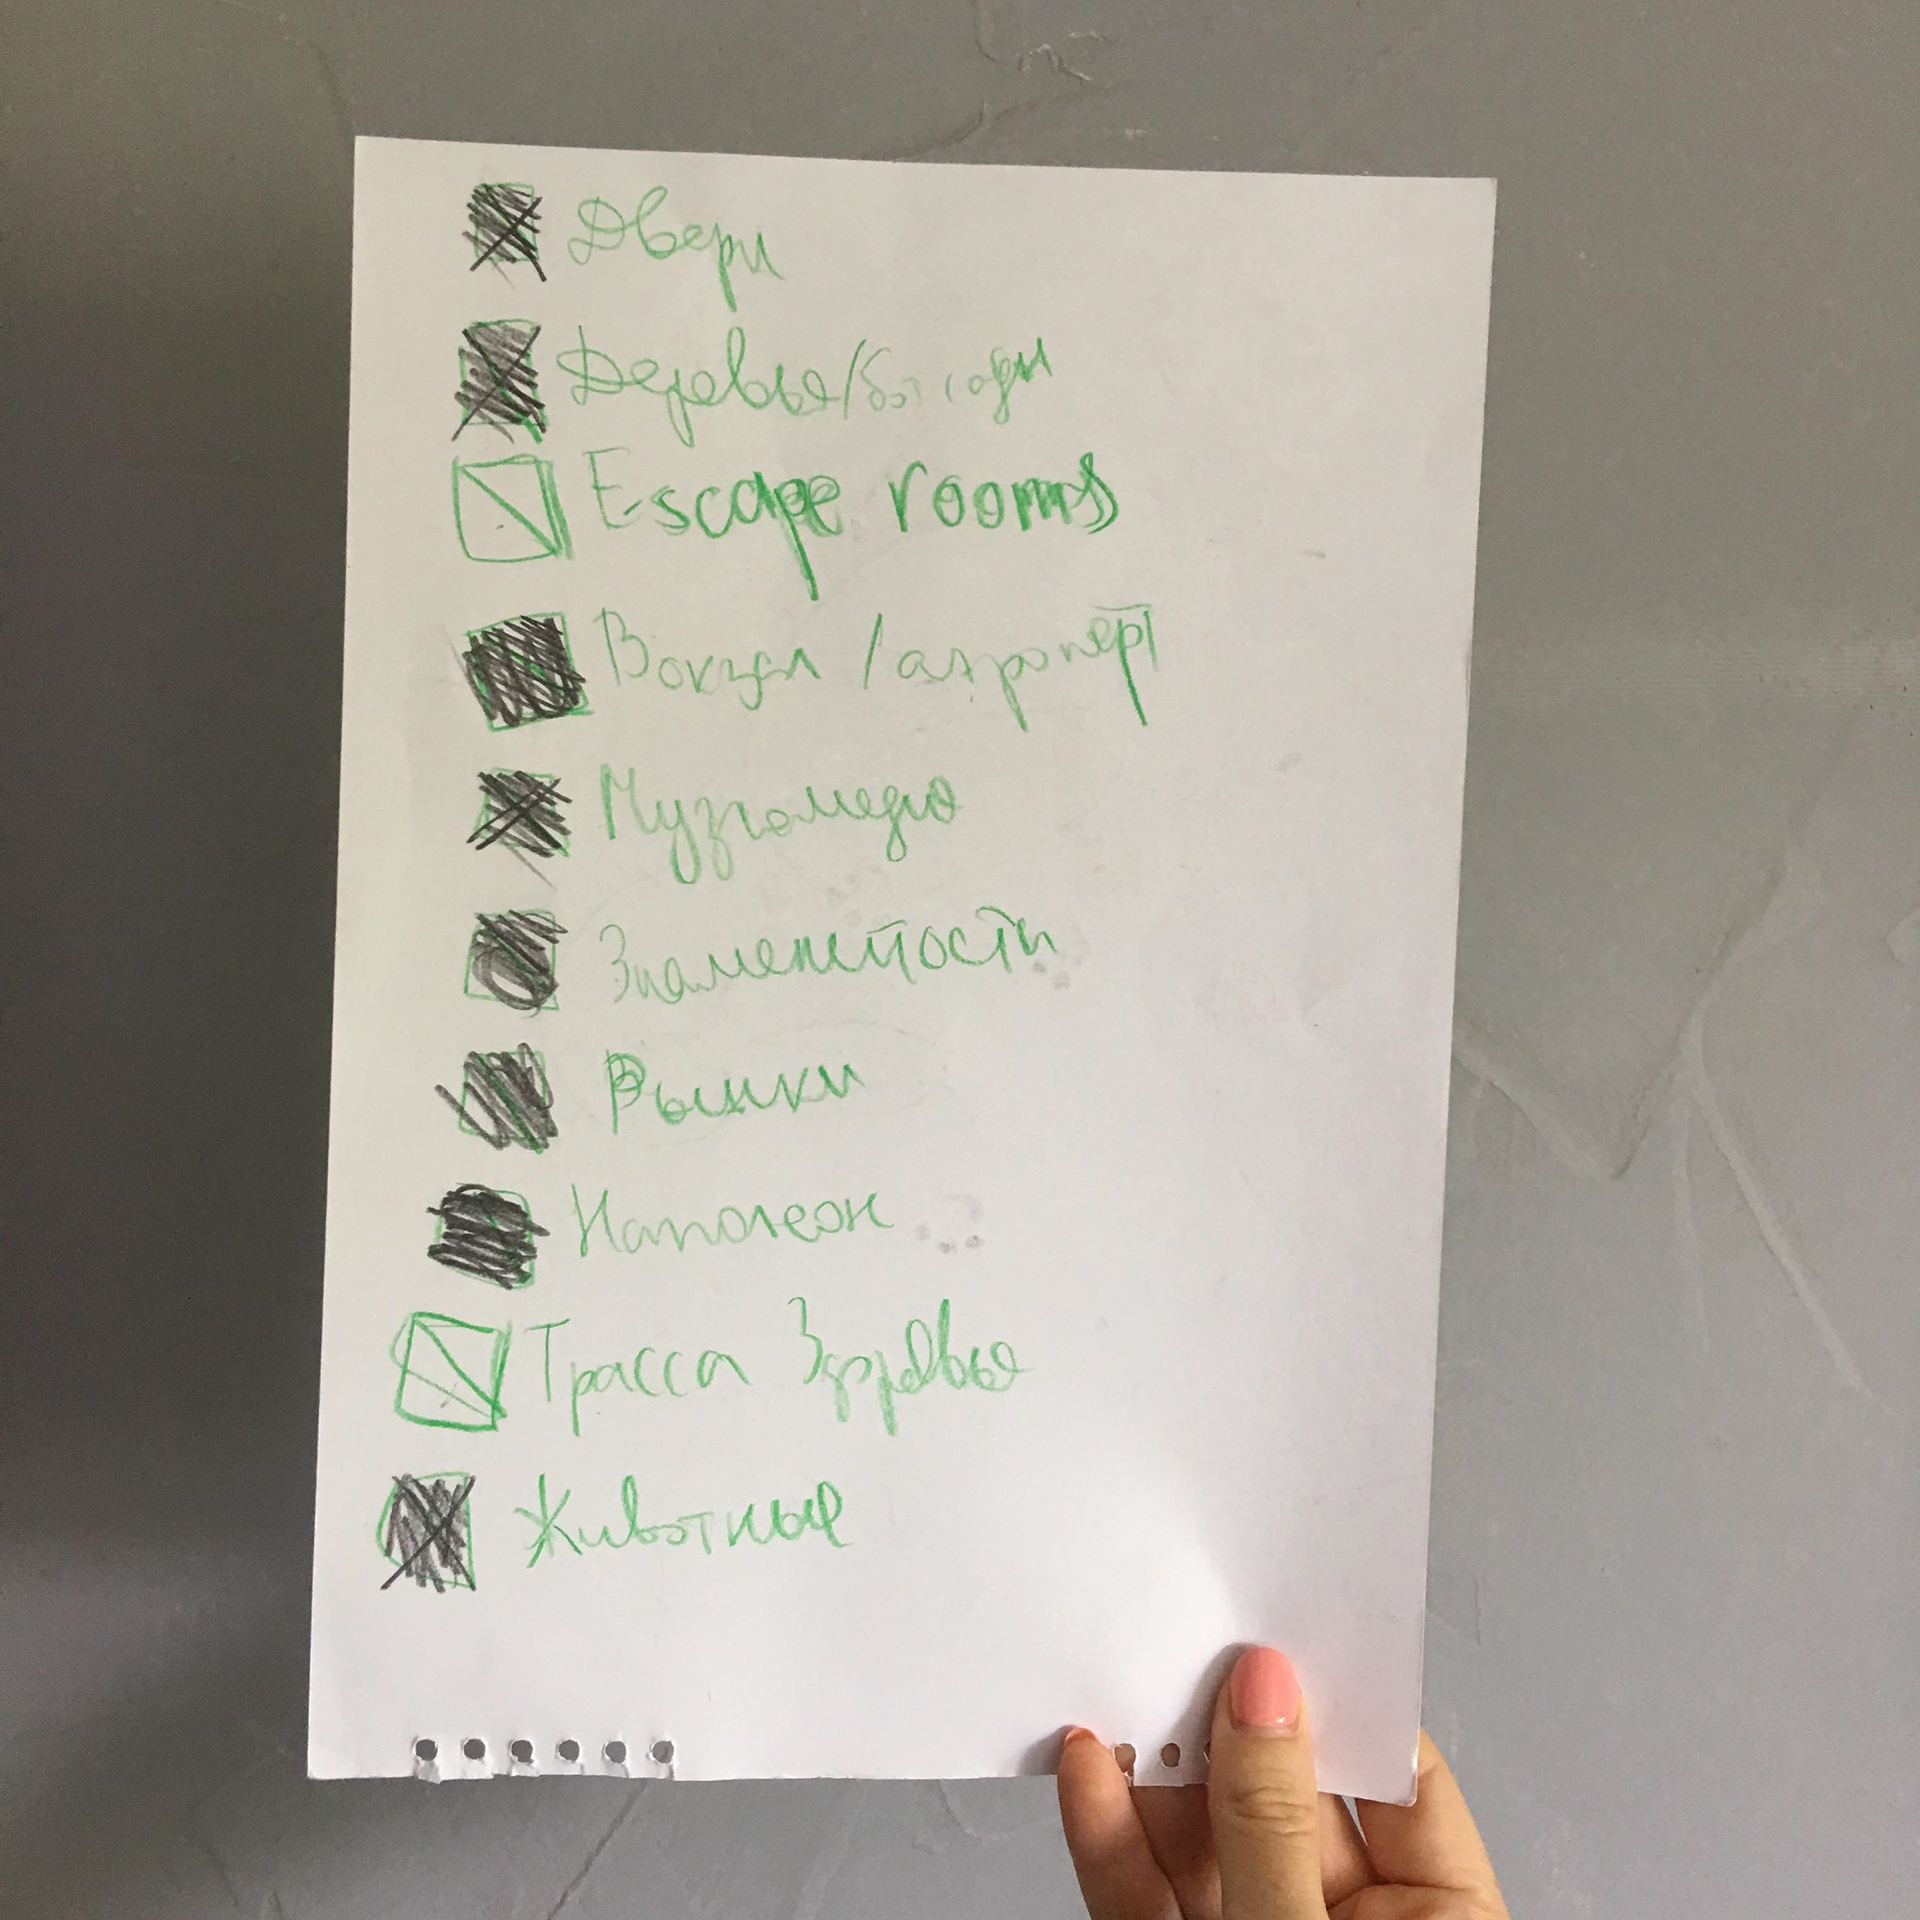 Двери
Деревья/
Escape rooms
Вокзал / аэропорт
Музкомедия
Знаменитости
Рынки
Наполеон
Трасса Здоровья
Животные